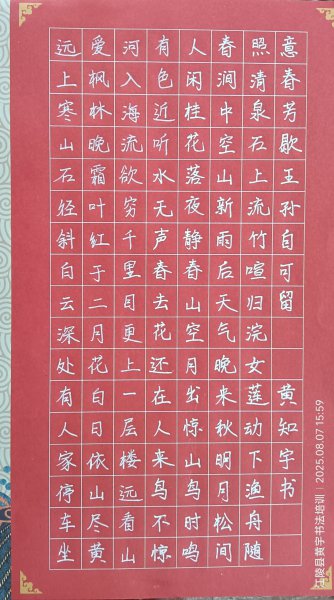 远上寒山石径斜白云深处有人家停车坐
爱枫林晚霜叶红于二月花白日依山尽黄
河入海流欲穷千里目更上一层楼远看山
有色近听水无声春去花还在人来鸟不惊
人闲桂花落夜静春山空月出惊山鸟时鸣
春涧中空山新雨后天气晚来秋明月松间
照清泉石上流竹喧归浣女莲动下渔舟随
意春芳歇王孙自可留 黄知宇书
江陵县黄宇书法培训 | 2025.08.07 15:59